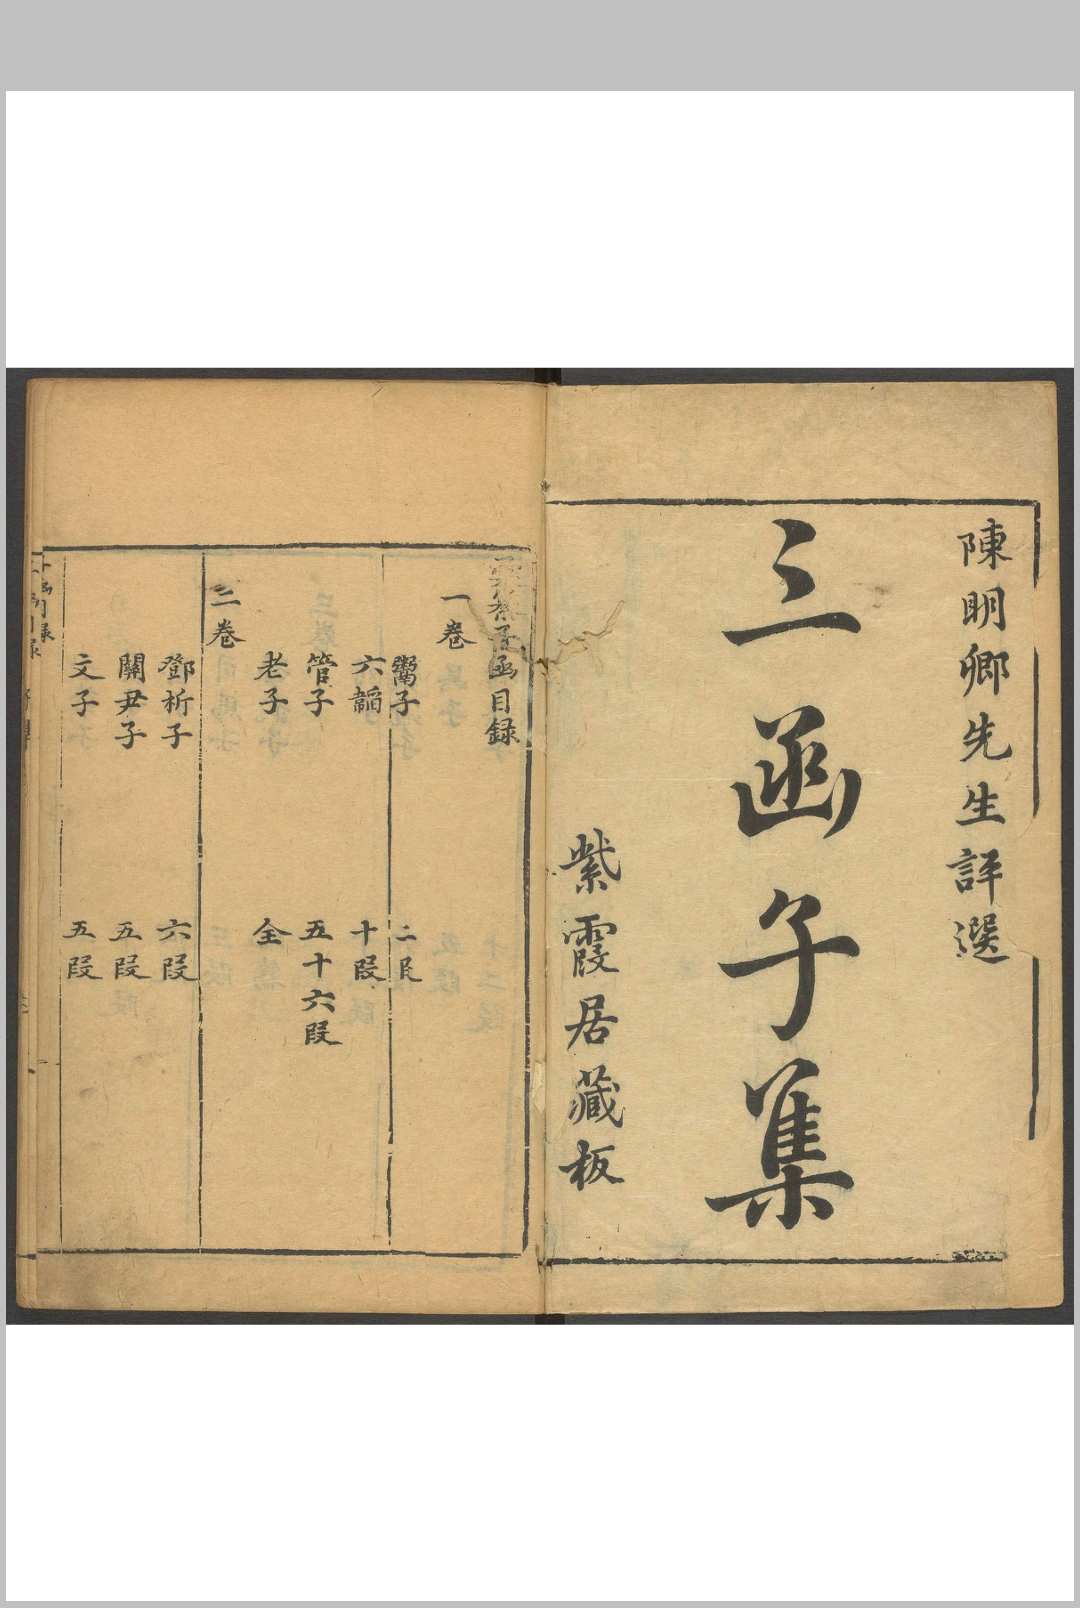 陳明卿先生評選
三函子集
紫霞居藏板
子函目錄
一卷
鬻子 二段
六韜 十段
管子 五十六段
老子 全
二卷
鄧析子 六段
關尹子 五段
文子 五段